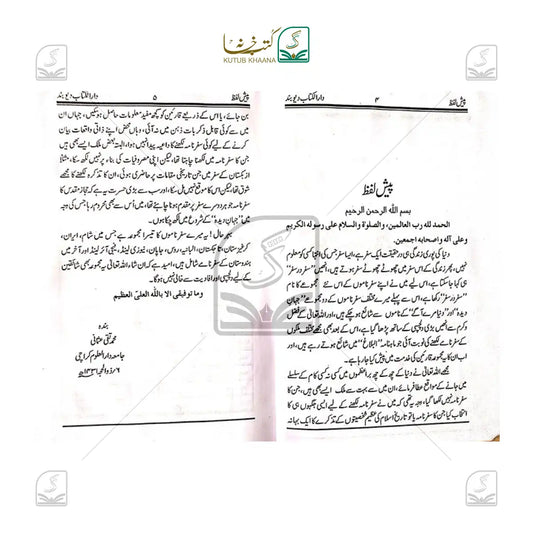 کتب خانہ
KUTUB KHAANA
پیش لفظ ۴ دارالکتاب دیوبند
پیش لفظ
بسم اللہ الرحمن الرحیم
الحمد للہ رب العالمین، والصلوة والسلام علی رسولہ الکریم
وعلی آلہ واصحابہ اجمعین۔
دنیا کی پوری زندگی ہی درحقیقت ایک سفر ہے، ایسا سفر جس کی انتہا کسی کو معلوم
نہیں، پھر زندگی کے اس سفر میں چھوٹے چھوٹے سفر ہوتے رہتے ہیں، انہیں "سفر در سفر"
کہا جا سکتا ہے، اس لیے میں نے اپنے سفرناموں کے اس مجموعے کا نام
"سفر در سفر" رکھا ہے، اس سے پہلے میرے مختلف سفرناموں کے دو مجموعے "جہان
دیدہ" اور "دنیا مرے آگے" کے نام سے شائع ہو چکے ہیں، اور اللہ تعالیٰ کے فضل
وکرم سے انہیں بڑی دلچسپی کے ساتھ پڑھا گیا ہے، اس کے بعد بھی مجھے مختلف ملکوں
کے سفرنامے لکھنے کی نوبت آئی جو ماہنامہ "البلاغ" میں شائع ہوتے رہے ہیں، اور
اب ان کا یہ مجموعہ قارئین کی خدمت میں پیش کیا جا رہا ہے۔
مجھے اللہ تعالیٰ نے دنیا کے چھ کے چھ براعظموں میں کسی نہ کسی کام کے سلسلے
میں جانے کے مواقع عطا فرمائے، ان میں سے بہت سے ملک ایسے بھی ہیں، جن کا
سفرنامہ نہیں لکھا گیا، وجہ یہ تھی کہ میں نے سفرنامہ لکھنے کے لیے ایسی جگہوں ہی کا
انتخاب کیا جن کا سفرنامہ یا تو تاریخ اسلام کی عظیم شخصیتوں کے تذکرے کا ایک بہانہ
پیش لفظ ۵ دارالکتاب دیوبند
بن جائے، یا اس کے ذریعے قارئین کو کچھ مفید معلومات حاصل ہو سکیں، جہاں ان
میں سے کوئی قابل ذکر بات ذہن میں نہ آئی، وہاں محض اپنے ذاتی واقعات بیان
کرنے کے لیے کوئی سفرنامہ لکھنے کا داعیہ پیدا نہیں ہوا، البتہ بعض ملک ایسے بھی ہیں
جن کا سفرنامہ میں لکھنا چاہتا تھا، لیکن اپنی مصروفیات کی بنا پر نہیں لکھ سکا، مثلاً
ازبکستان کے سفر میں جن تاریخی مقامات پر حاضری ہوئی، ان کا تذکرہ لکھنے کا مجھے
شوق تھا، لیکن اس کا موقع نہیں مل سکا، اور سب سے بڑی حسرت یہ ہے کہ حجاز مقدس کا
سفرنامہ جو ہر دوسرے سفر پر مقدم ہونا چاہئے تھا، میں اُس سے بھی محروم رہا جس کی وجہ
میں "جہان دیدہ" کے شروع میں لکھ چکا ہوں۔
بہرحال! یہ میرے سفرناموں کا تیسرا مجموعہ ہے جس میں شام، ایران،
کرغیزستان، تاجکستان، البانیہ، روس، جاپان، نیوزی لینڈ، فیجی آئرلینڈ اور آخر میں
ہندوستان کے سفرنامے شامل ہیں، امید ہے کہ ان شاء اللہ تعالیٰ یہ مجموعہ بھی شائقین
کے لیے دلچسپی اور افادیت سے خالی نہیں ہوگا۔
وما توفیقی الا باللہ العلی العظیم
بندہ
محمد تقی عثمانی
جامعہ دارالعلوم کراچی
۶؍ ذوالحجہ ۱۴۳۱ھ